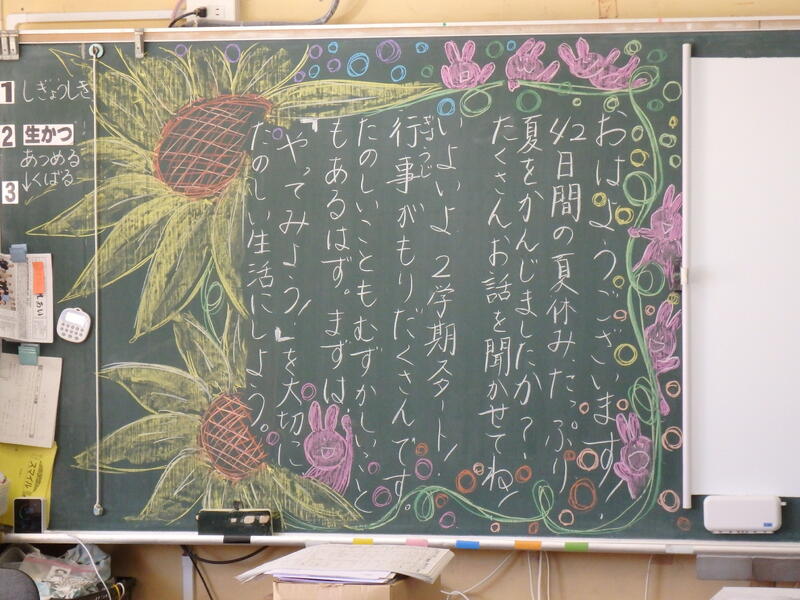 おはようございます!
42日間の夏休み、たっぷり
夏をかんじましたか?
たくさんお話を聞かせてね!
いよいよ 2学期スタート!
行事がもりだくさんです。
ぎょうじ
たのしいことも むずかしいこと
もあるはず。まずは、
「やってみよう!」を大切に
たのしい生活にしよう。
1 しぎょうしき
2 生かつ
あつめる
↓くばる
3
スマイル